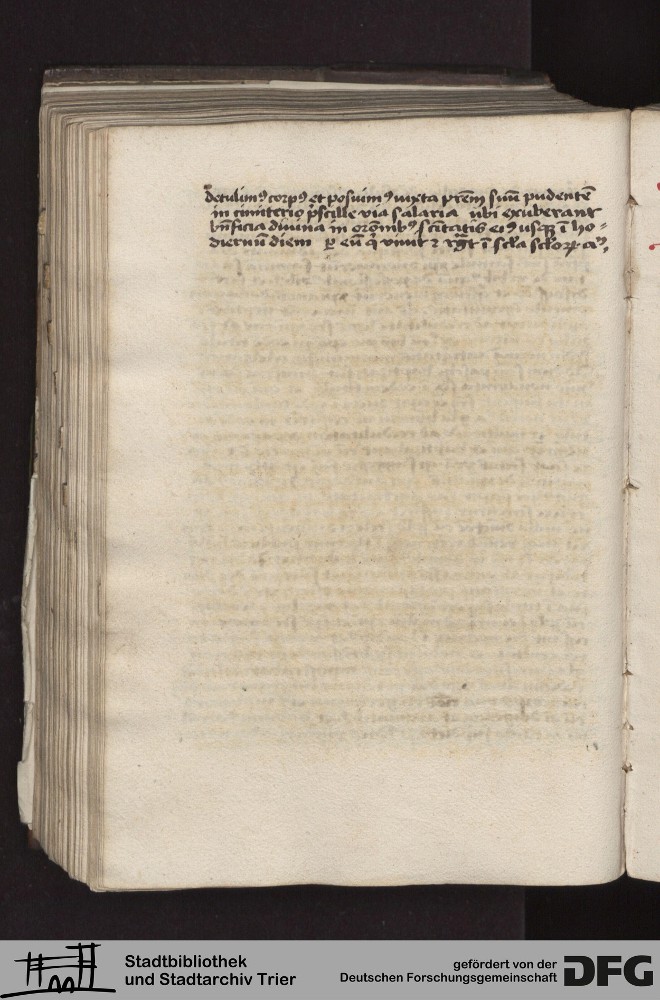 detulimꝰ corpꝰ et posuimꝰ iuxta prēm suū pudentē
in cimiterio pͥscille via salaria ubi exuberant
bn̄ficia diuina in orōnibꝰ scītatis eiꝰ usqꝫ ī ho⸗
diernū diem ꝑ eū qͥ viuit ⁊ rgͣt ī scl̓a scl̓oꝝ am̄
Stadtbibliothek
und Stadtarchiv Trier
gefördert von der
Deutschen Forschungsgemeinschaft
DFG